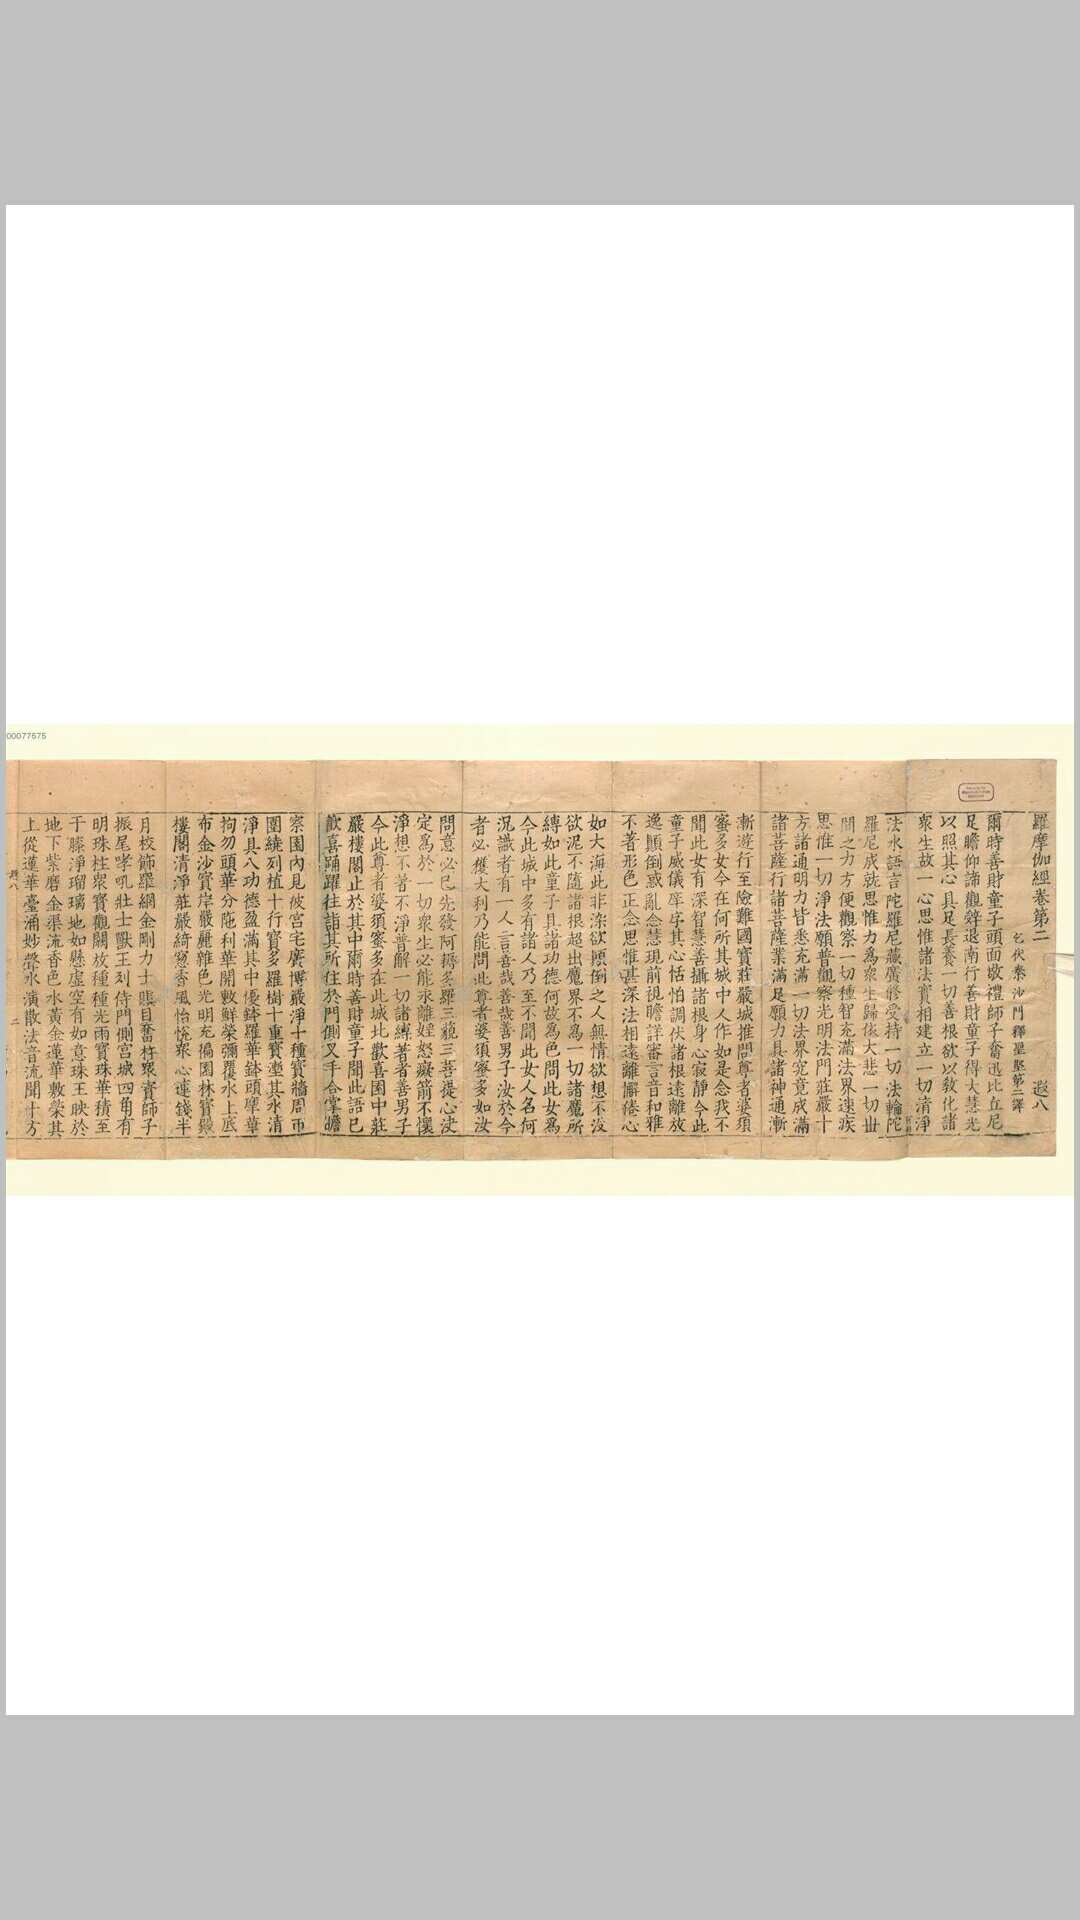 00077675
羅摩伽經卷第二 遐八
乞伏秦沙門釋聖堅第二譯
爾時善財童子頭面敬禮師子奮迅比丘尼
足瞻仰諦觀辭退南行善財童子得大慧光
以照其心具足長養一切善根欲以教化諸
衆生故一心思惟諸法實相建立一切清淨
法水語言陀羅尼藏廣修受持一切法輪陀
羅尼成就思惟力爲衆生歸依大悲一切世
間之力方便觀察一切種智充滿法界速疾
思惟一切淨法願普觀察光明法門莊嚴十
方諸通明力皆悉充滿一切法界究竟成滿
諸菩薩行諸菩薩業滿足願力具諸神通漸
漸遊行至險難國寶莊嚴城推問尊者婆須
蜜多女今在何所其城中人作如是念我不
聞此女有深智慧善攝諸根身心寂靜今此
童子威儀庠序其心恬怕調伏諸根遠離放
逸顛倒惑亂念慧現前視瞻詳審言音和雅
不著形色正念思惟甚深法相遠離懈倦心
如大海此非染欲顛倒之人無情欲想不沒
欲泥不隨諸根超出魔界不為一切諸魔所
縛如此童子具諸功德何故為色問此女爲
今此城中多有諸人乃至不聞此女人名何
況識者有一人言善哉善哉善男子汝於今
者必獲大利乃能問此尊者婆須蜜多如汝
問意必已先發阿耨多羅三藐三菩提心決
定爲於一切衆生必能永離婬怒癡箭不懷
淨想不著不淨普解一切諸縛著者善男子
今此尊者婆須蜜多在此城北歡喜園中莊
嚴樓閣止於其中爾時善財童子聞此語已
歡喜踊躍往詣其所住於門側叉手合掌瞻
察園內見彼宮宅廣博嚴淨十種寶牆周帀
圍繞列植十行寶多羅樹十重寶壍其水清
淨具八功德盈滿其中優鉢羅華鉢頭摩華
拘勿頭華分陁利華開敷鮮榮彌覆水上底
布金沙寶岸嚴麗雜色光明充徧園林寶殿
樓閣清淨莊嚴綺窓香風怡悅衆心連錢半
月校飾羅網金剛力士瞋目奮杵衆寶師子
振尾哮吼壯士獸王列侍門側宮城四角有
明珠柱衆寶觀闕放種種光雨寶珠華積至
于膝淨瑠璃地如懸虛空有如意珠王映於
地下紫磨金渠流香色水黃金蓮華敷榮其
上從蓮華臺涌妙聲水演散法音流聞十方